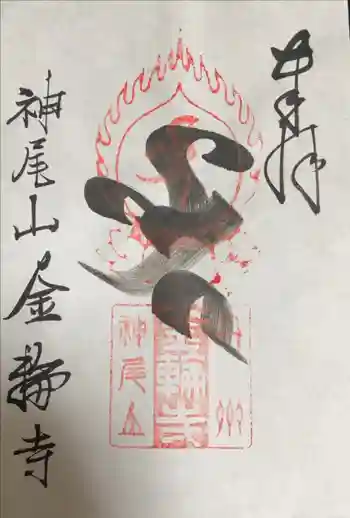 奉拝
神尾山金輪寺
神尾山
金輪寺